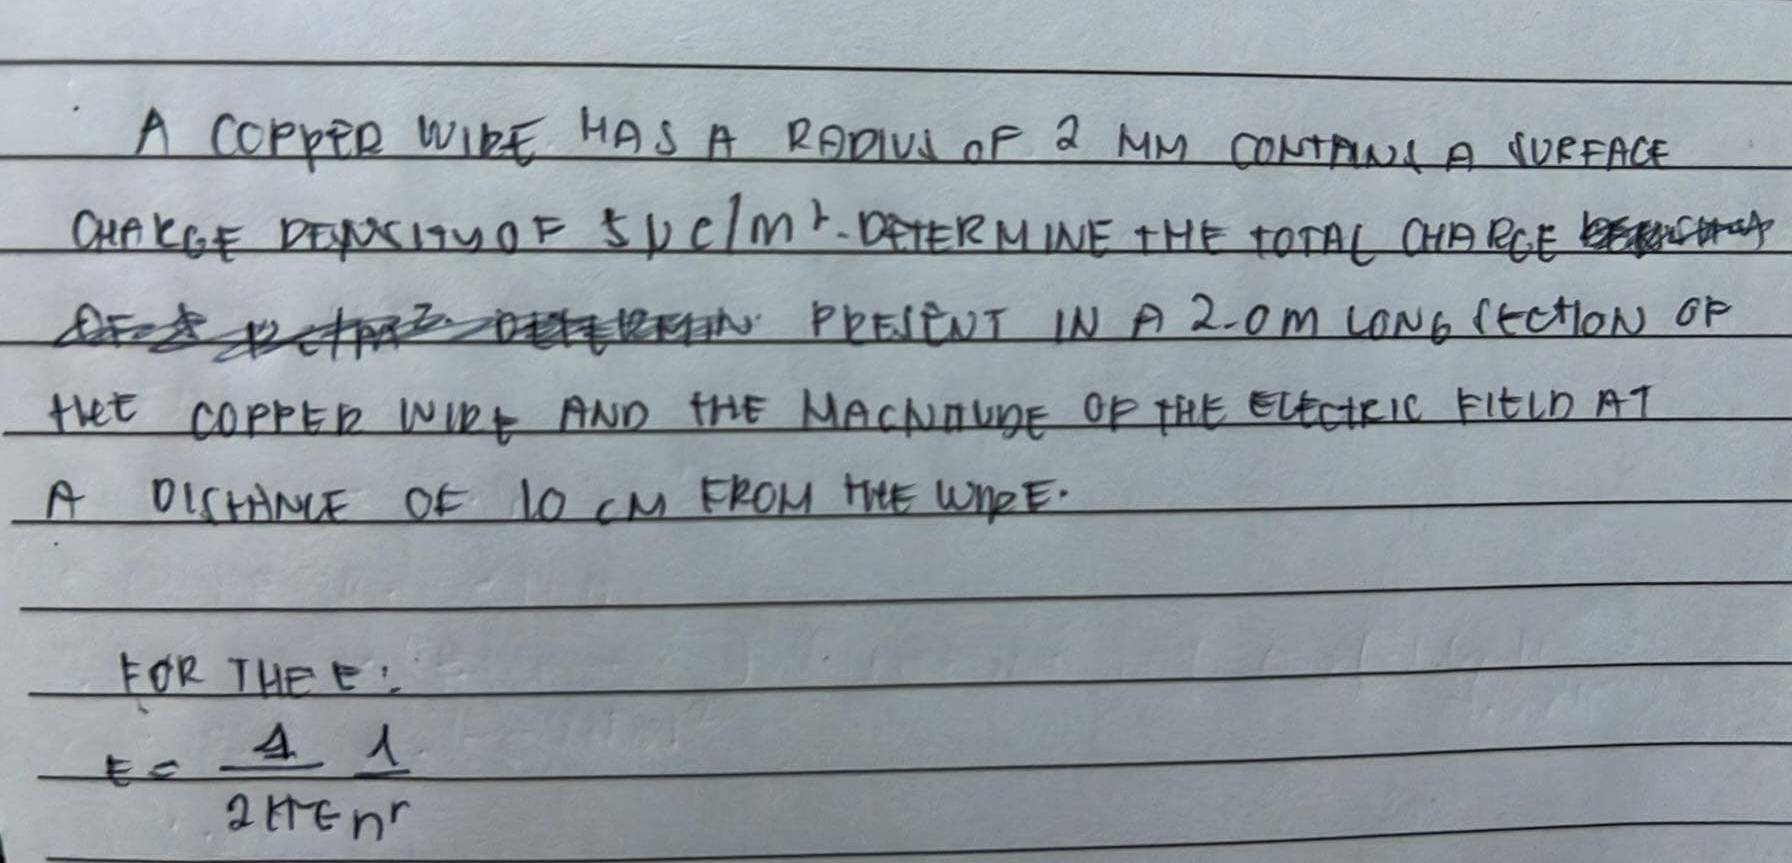 A COPPER WIRE HAS A RADIUS OF 2 MM CONTAINS A SURFACE
CHARGE DENSITY OF 5 μC/m². DETERMINE THE TOTAL CHARGE
PRESENT IN A 2.0 M LONG SECTION OF
THE COPPER WIRE AND THE MAGNITUDE OF THE ELECTRIC FIELD AT
A DISTANCE OF 10 CM FROM THE WIRE.
FOR THE E:
E =